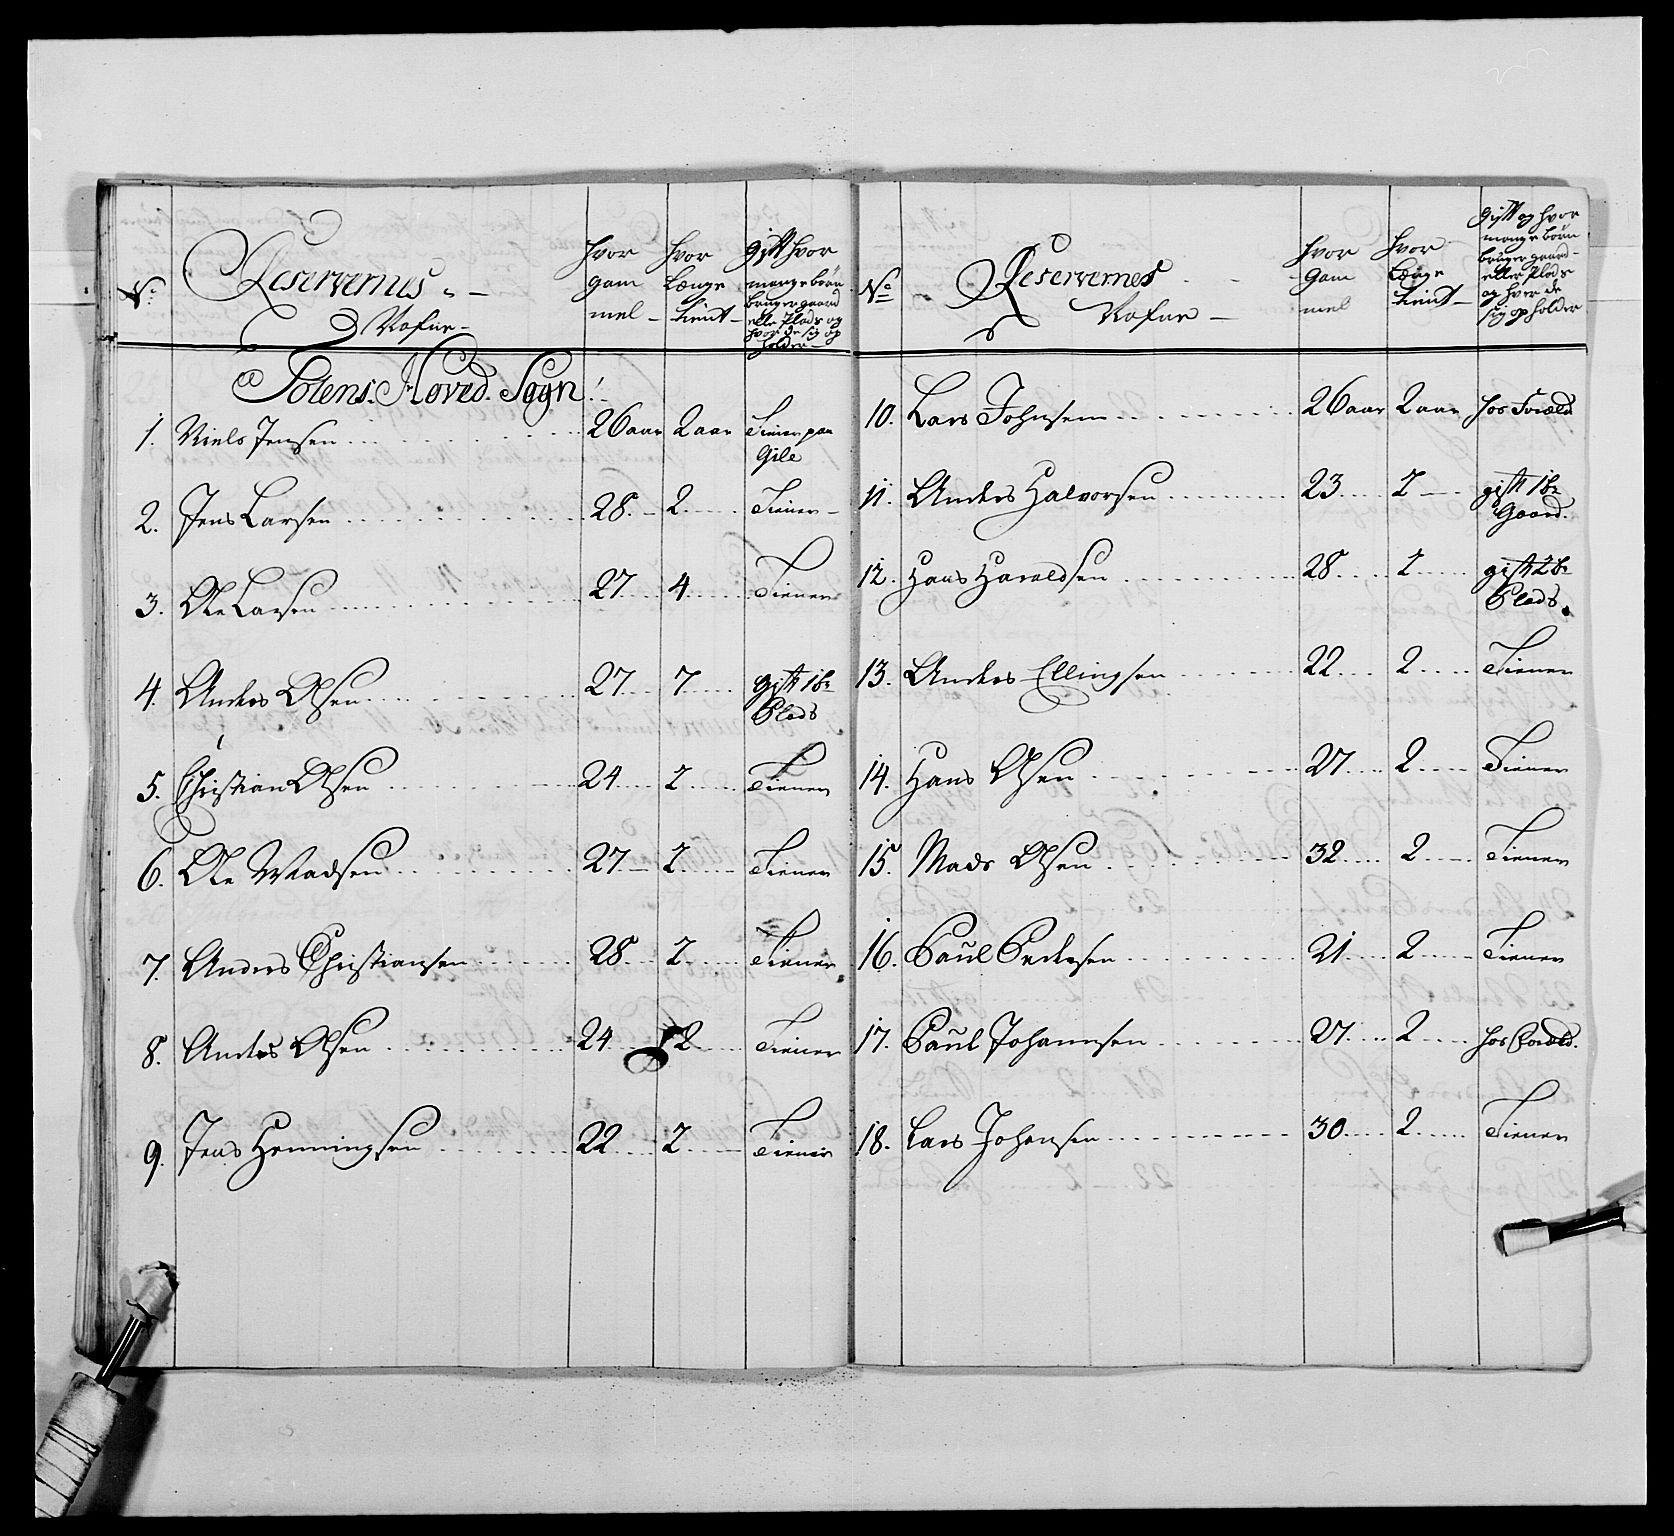 No
Reservernes
Nafne
hvor
gam
mel
hvor
Længe
tient
gift hvor
mange børn
bruger gaard
elle Plads og
hvor de sig op
holder
Totens Hoved Sogn
1. Niels Jensen 26 aar 2 aar Tiener paa
Gile
2. Jens Larsen 28 2 Tiener
3. Ole Larsen 27 4 Tiener
4. Anders Olsen 27 7 gift 1 b:
Plads
5. Christian Olsen 24 2 Tiener
6. Ole Madsen 27 2 Tiener
7. Anders Christiansen 28 2 Tiener
8. Anders Olsen 24 2 Tiener
9. Jens Henningsen 22 2 Tiener
No
Reservernes
Nafne
hvor
gam
mel
hvor
Længe
tient
gift og hvor
mange børn
bruger gaard
eller Plads
og hvor de
sig opholder
10. Lars Johnsen 26 aar 2 aar hos
11. Anders Halvorsen 23 2 gift 1 b:
Gaard.
12. Hans Haraldsen 28 2 gift 2 b:
Plads.
13. Anders Ellingsen 22 2 Tiener
14. Hans Olsen 27 2 Tiener
15. Mads Olsen 32 2 Tiener
16. Paul Pedersen 21 2 Tiener
17. Paul Johannsen 27 2 hos
18. Lars Johansen 30 2 Tiener